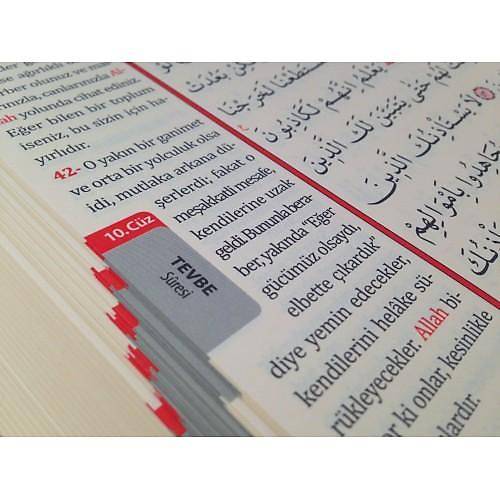 se ağırlıklı
rber olunuz ve ma
rınızla, canlarınızla Al-
ah yolunda cihat ediniz.
Eğer bilen bir toplum
iseniz, bu sizin için ha-
yırlıdır.
42- O yakın bir ganimet
ve orta bir yolculuk olsa
idi, mutlaka arkana dü-
şerlerdi; fakat o
meşakkatli mesafe,
kendilerine uzak
geldi. Bununla bera-
ber, yakında "Eğer
gücümüz olsaydı,
elbette çıkardık"
diye yemin edecekler,
kendilerini helâke sü-
rükleyecekler. Allah bi-
er ki onlar, kesinlikle
lardır.
10.Cüz
TEVBE
Sûresi
لَخَرَجْنَا
يَعْلَمُ اِنَّهُمْ لَكَاذِبُونَ
لَهُمْ حَتّٰى يَتَبَيَّنَ لَكَ الَّذِينَ
لَا يَسْتَأْذِنُكَ الَّذِينَ
بِاَمْوَالِهِمْ